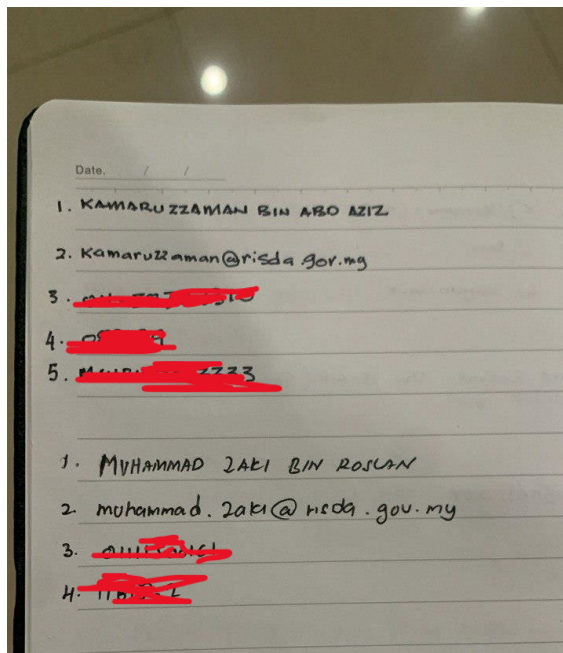 Date. / /
1. KAMARUZZAMAN BIN ABD AZIZ
2. Kamaruzzaman@risda.gov.my
3.
4.
5.
1. MUHAMMAD ZAKI BIN ROSLAN
2 muhammad.zaki@risda.gov.my
3.
4.